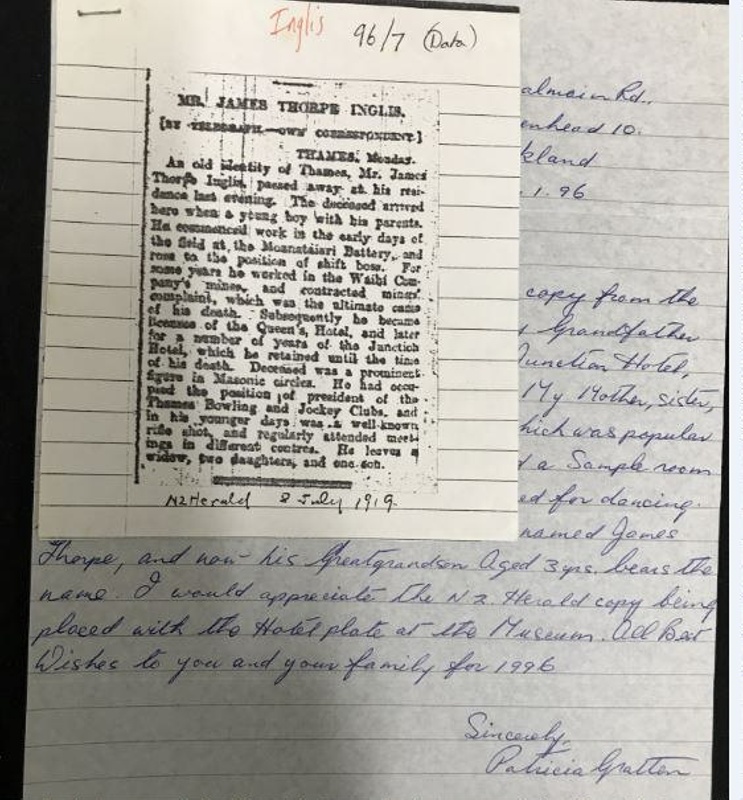 Inglis 96/7 (Data)
MR. JAMES THORPE INGLIS.
[BY TELEGRAPH.—OWN CORRESPONDENT.]
THAMES, Monday.
An old identity of Thames, Mr. James
Thorpe Inglis, passed away at his resi-
dence last evening. The deceased arrived
here when a young boy with his parents.
He commenced work in the early days of
the field at the Moanataiari Battery, and
rose to the position of shift boss. For
some years he worked in the Waihi Com-
pany's mines, and contracted miners'
complaint, which was the ultimate cause
of his death. Subsequently he became
licensee of the Queen's Hotel, and later
for a number of years of the Junction
Hotel, which he retained until the time
of his death. Deceased was a prominent
figure in Masonic circles. He had occu-
pied the position of president of the
Thames Bowling and Jockey Clubs, and
in his younger days was a well-known
rifle shot, and regularly attended meet-
ings in different centres. He leaves a
widow, two daughters, and one son.
NZ Herald 8 July 1919.
almain Rd.,
enhead 10.
kland
1. 96
copy from the
Grandfather
Junction Hotel,
My Mother, sister,
hich was popular
a Sample room
ed for dancing.
named James
Thorpe, and now his Greatgrandson Aged 3yrs. bears the
name. I would appreciate the NZ. Herald copy being
placed with the Hotel plate at the Museum. All Best
Wishes to you and your family for 1996
Sincerely,
Patricia Gratten